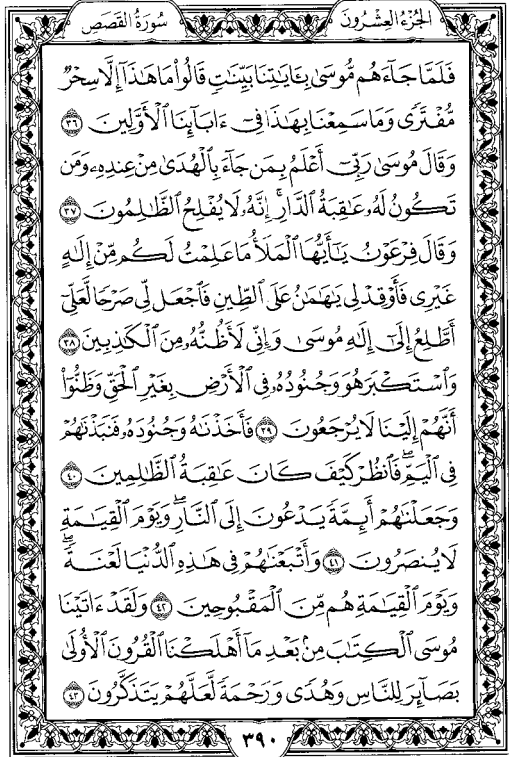 الجزء العشرون
سورة القصص
فَلَمَّا جَآءَهُم مُّوسَىٰ بِـَٔايَٰتِنَا بَيِّنَٰتٖ قَالُواْ مَا هَٰذَآ إِلَّا سِحۡرٞ
مُّفۡتَرٗى وَمَا سَمِعۡنَا بِهَٰذَا فِيٓ ءَابَآئِنَا ٱلۡأَوَّلِينَ ٣٦
وَقَالَ مُوسَىٰ رَبِّيٓ أَعۡلَمُ بِمَن جَآءَ بِٱلۡهُدَىٰ مِنۡ عِندِهِۦ وَمَن
تَكُونُ لَهُۥ عَٰقِبَةُ ٱلدَّارِۚ إِنَّهُۥ لَا يُفۡلِحُ ٱلظَّٰلِمُونَ ٣٧
وَقَالَ فِرۡعَوۡنُ يَٰٓأَيُّهَا ٱلۡمَلَأُ مَا عَلِمۡتُ لَكُم مِّنۡ إِلَٰهٍ
غَيۡرِي فَأَوۡقِدۡ لِي يَٰهَٰمَٰنُ عَلَى ٱلطِّينِ فَٱجۡعَل لِّي صَرۡحٗا لَّعَلِّيٓ
أَطَّلِعُ إِلَىٰٓ إِلَٰهِ مُوسَىٰ وَإِنِّي لَأَظُنُّهُۥ مِنَ ٱلۡكَٰذِبِينَ ٣٨
وَٱسۡتَكۡبَرَ هُوَ وَجُنُودُهُۥ فِي ٱلۡأَرۡضِ بِغَيۡرِ ٱلۡحَقِّ وَظَنُّوٓاْ
أَنَّهُمۡ إِلَيۡنَا لَا يُرۡجَعُونَ ٣٩ فَأَخَذۡنَٰهُ وَجُنُودَهُۥ فَنَبَذۡنَٰهُمۡ
فِي ٱلۡيَمِّۖ فَٱنظُرۡ كَيۡفَ كَانَ عَٰقِبَةُ ٱلظَّٰلِمِينَ ٤٠
وَجَعَلۡنَٰهُمۡ أَئِمَّةٗ يَدۡعُونَ إِلَى ٱلنَّارِۖ وَيَوۡمَ ٱلۡقِيَٰمَةِ
لَا يُنصَرُونَ ٤١ وَأَتۡبَعۡنَٰهُمۡ فِي هَٰذِهِ ٱلدُّنۡيَا لَعۡنَةٗۖ
وَيَوۡمَ ٱلۡقِيَٰمَةِ هُم مِّنَ ٱلۡمَقۡبُوحِينَ ٤٢ وَلَقَدۡ ءَاتَيۡنَا
مُوسَى ٱلۡكِتَٰبَ مِنۢ بَعۡدِ مَآ أَهۡلَكۡنَا ٱلۡقُرُونَ ٱلۡأُولَىٰ
بَصَآئِرَ لِلنَّاسِ وَهُدٗى وَرَحۡمَةٗ لَّعَلَّهُمۡ يَتَذَكَّرُونَ ٤٣
٣٩٠